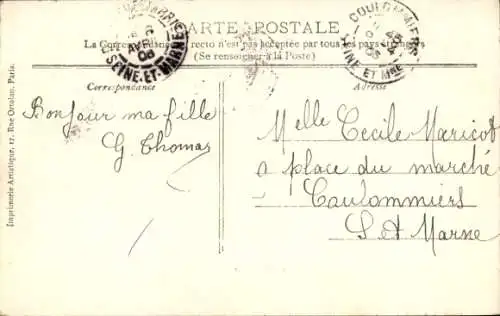 CARTE POSTALE
La Correspondance au recto n'est pas acceptée par tous les pays étrangers
(Se renseigner à la Poste)
Correspondance
Adresse
Bonjour ma fille
G. Thomas
Melle Cecile Maricot
a place du marché
Coulommiers
S. et Marne
Imprimerie Artistique, 17, Rue Ortolan, Paris.
AVRIL
08
SEINE-ET-MARNE
COULOMMIERS
SEINE ET MNE